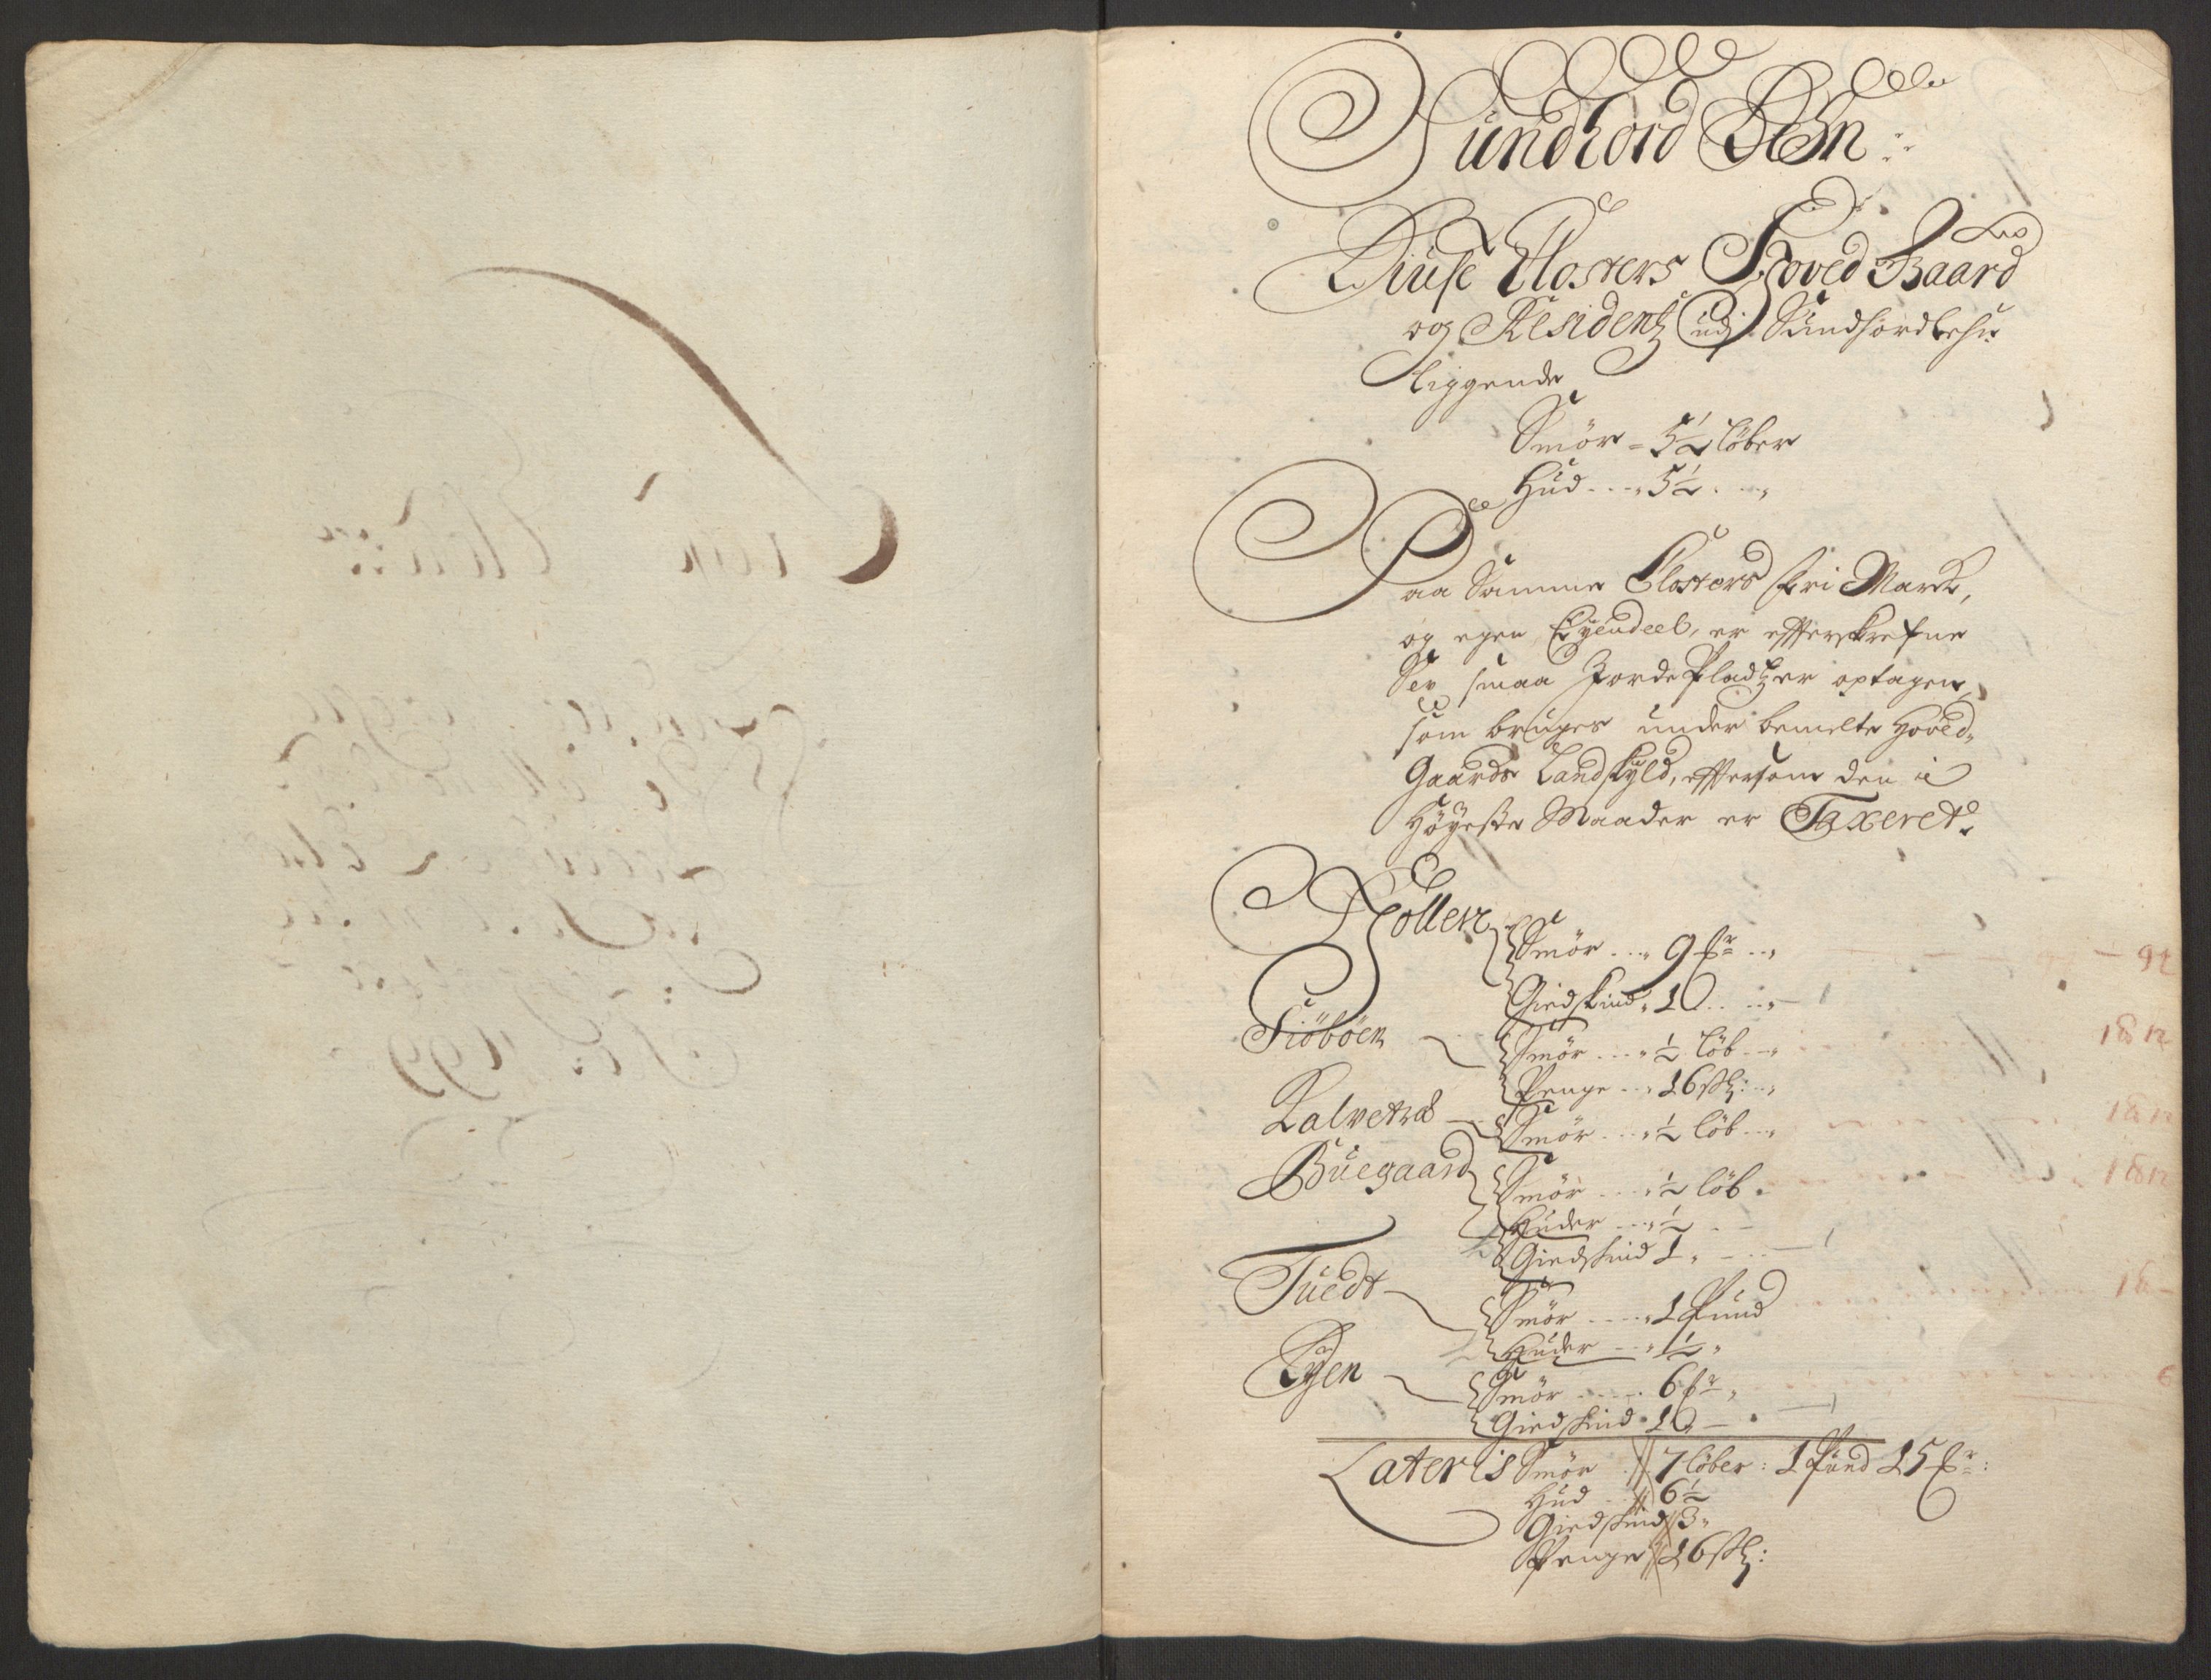 Sundhord Lehn
Liuse Closters Hoved Gaard
og Residentz udj Sundhordlehn
liggende
Smör = 5½ löber
Hud - - - 5½ - - -
Paa Samme Closters fri March,
og egen Eyendeel, er effterskrefne
Sex smaa Jorde Pladtzer optagen,
som bruges under bemelte Hoved,
Gaards Landskyld, effersom den i
Höyeste Maader er Taxeret.
Smör - - - 9 - - - 92
Giedskind 1 - - - 1
Siöböen
Smör - - - ½ löb - - -
Penge - - - 16 ß - - -
Kalvetræ
Smör - - - ½ löb - - -
Buegaard
Smör - - - ½ löb
Huder - - - ½
Giedskind 1 - - - 1
Tuedt
Smör - - - 1 Pund
Huder - - - ½
Smör - - - 6 - - - 6
Giedskind 1 - - - 1
Lateris Smör 7 löber: 1 Pund 15
Hud 6½
Giedskind 3
Penge 16 ß: